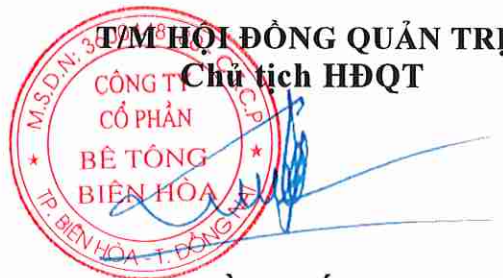 T/M HỘI ĐỒNG QUẢN TRỊ
Chủ tịch HĐQT
CÔNG TY
CỔ PHẦN
BÊ TÔNG
BIÊN HÒA
TP. BIÊN HÒA - T. ĐỒNG NAI